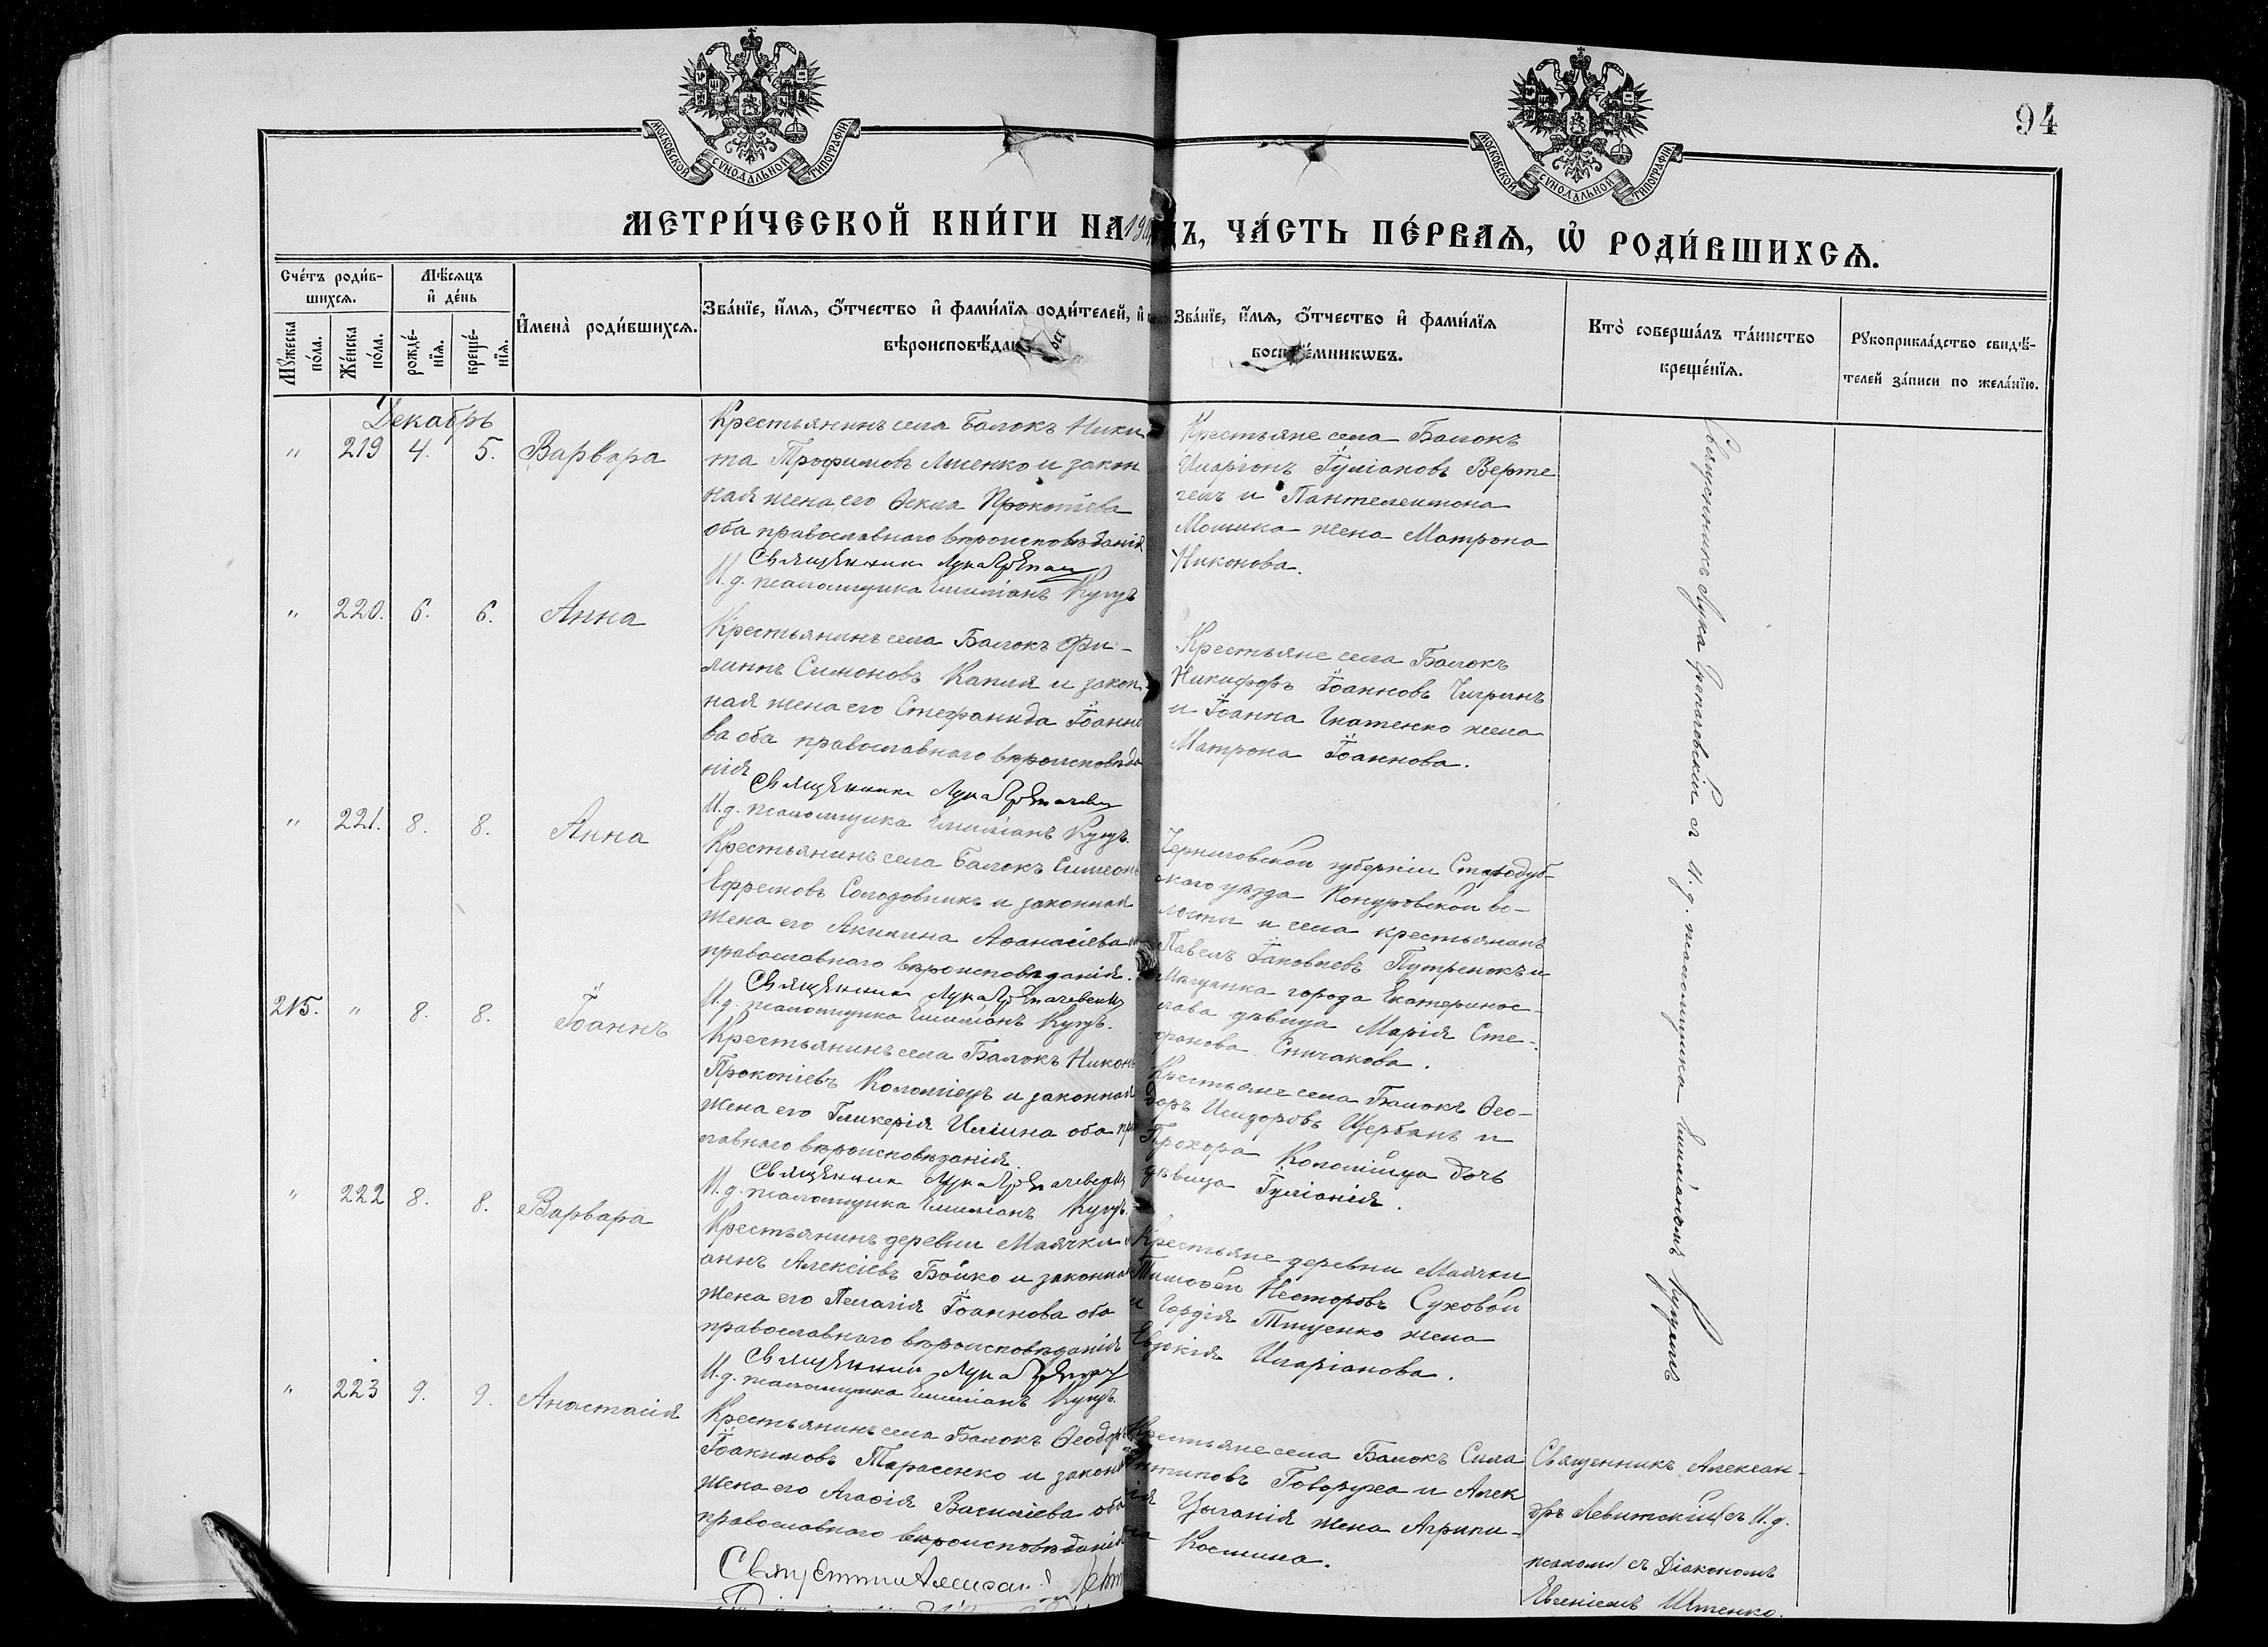 94
МОСКОВСКОЙ СУНОДАЛЬНОЙ ТИПОГРАФІИ
МОСКОВСКОЙ СУНОДАЛЬНОЙ ТИПОГРАФІИ
МЕТРИ́ЧЕСКОЙ КНИ́ГИ НА ДЪ, ЧА́СТЬ ПЕ́РВАѦ, Ѡ РОДИ́ВШИХСѦ.
Сче́тъ роди́в-
шихсѧ.
Мꙋ́жеска по́ла.
Же́нска по́ла.
Мѣ́сѧцъ
и҆ де́нь
рожде́-
нїѧ.
креще́-
нїѧ.
И҆мена̀ роди́вшихсѧ.
Зва́нїе, и҆́мѧ, ѻ҆́тчество и҆ фами́лїѧ роди́телей, и҆
вѣроисповѣ́да
Зва́нїе, и҆́мѧ, ѻ҆́тчество и҆ фами́лїѧ
воспрїе́мникѡвъ.
Кто̀ соверша́лъ та́инство
креще́нїѧ.
Рꙋкоприкла́дство свидѣ́-
телей за́писи по жела́нїю.
Декабрь
" 219 4. 5. Варвара
Крестьянинъ села Балокъ Ники
та Трофимовъ Лысенко и закон
ная жена его Ѳекла Прокопіева
оба православнаго вѣроисповѣданія
Священник Лука
И. д. псаломщика Емиліанъ Куцъ
Крестьяне села Балокъ
Иларіонъ Іуліановъ Верте
гелъ и Пантелеимона
Мошика жена Матрона
Никонова.
" 220. 6. 6. Анна
Крестьянинъ села Балокъ Фи-
липпъ Симоновъ Капля и закон
ная жена его Стефанида Іоанно
ва оба православнаго вѣроисповѣда
нія
Священник Лука
И. д. псаломщика Емиліанъ Куцъ.
Крестьяне села Балокъ
Никифоръ Іоанновъ Чигринъ
и Іоанна Игнатенко жена
Матрона Іоаннова.
" 221. 8. 8. Анна
Крестьянинъ села Балокъ Симеонъ
Ефремовъ Солодовникъ и законная
жена его Акилина Аѳанасіева
православнаго вѣроисповѣданія.
Священник Лука
И. д. псаломщика Емиліанъ Куцъ.
Черниговской губерніи Стародуб-
скаго уѣзда Понуровской во-
лости и села крестьянинъ
Павелъ Іаковлевъ Путренокъ и
Мѣщанка города Екатеринос-
лава дѣвица Марія Сте-
фанова Спичакова.
215. " 8. 8. Іоаннъ
Крестьянинъ села Балокъ Никонъ
Прокопіевъ Коломіецъ и законная
жена его Гликерія Иліина оба пра
славнаго вѣроисповѣданія
Священник Лука
И. д. псаломщика Емиліанъ Куцъ.
Крестьяне села Балокъ Ѳео-
доръ Исидоровъ Щербань и
Прохора Коломійца дочь
дѣвица Іуліанія.
" 222 8. 8. Варвара
Крестьянинъ деревни Маячки
аннъ Алексіевъ Бойко и законная
жена его Пелагія Іоаннова оба
православнаго вѣроисповѣданія
Священник Лука
И. д. псаломщика Емиліанъ Куцъ.
Крестьяне деревни Маячки
Тимоѳей Несторовъ Суховой
и Гордія Тищенко жена
Евдокія Иларіанова.
" 223 9. 9. Анастасія
Крестьянинъ села Балокъ Ѳеодоръ
Іоакимовъ Тарасенко и закон
жена его Агаѳія Василіева оба
православнаго вѣроисповѣданія
Священник
Крестьяне села Балокъ Сила
Говоруха и Алек
Цыганія жена Агрипи-
Космина.
Священникъ Лука съ И. д. псаломщика Емиліаномъ Куцемъ
Священникъ Алексан-
дръ Левитскій съ И. д.
псалом съ Діакономъ
Евгеніемъ